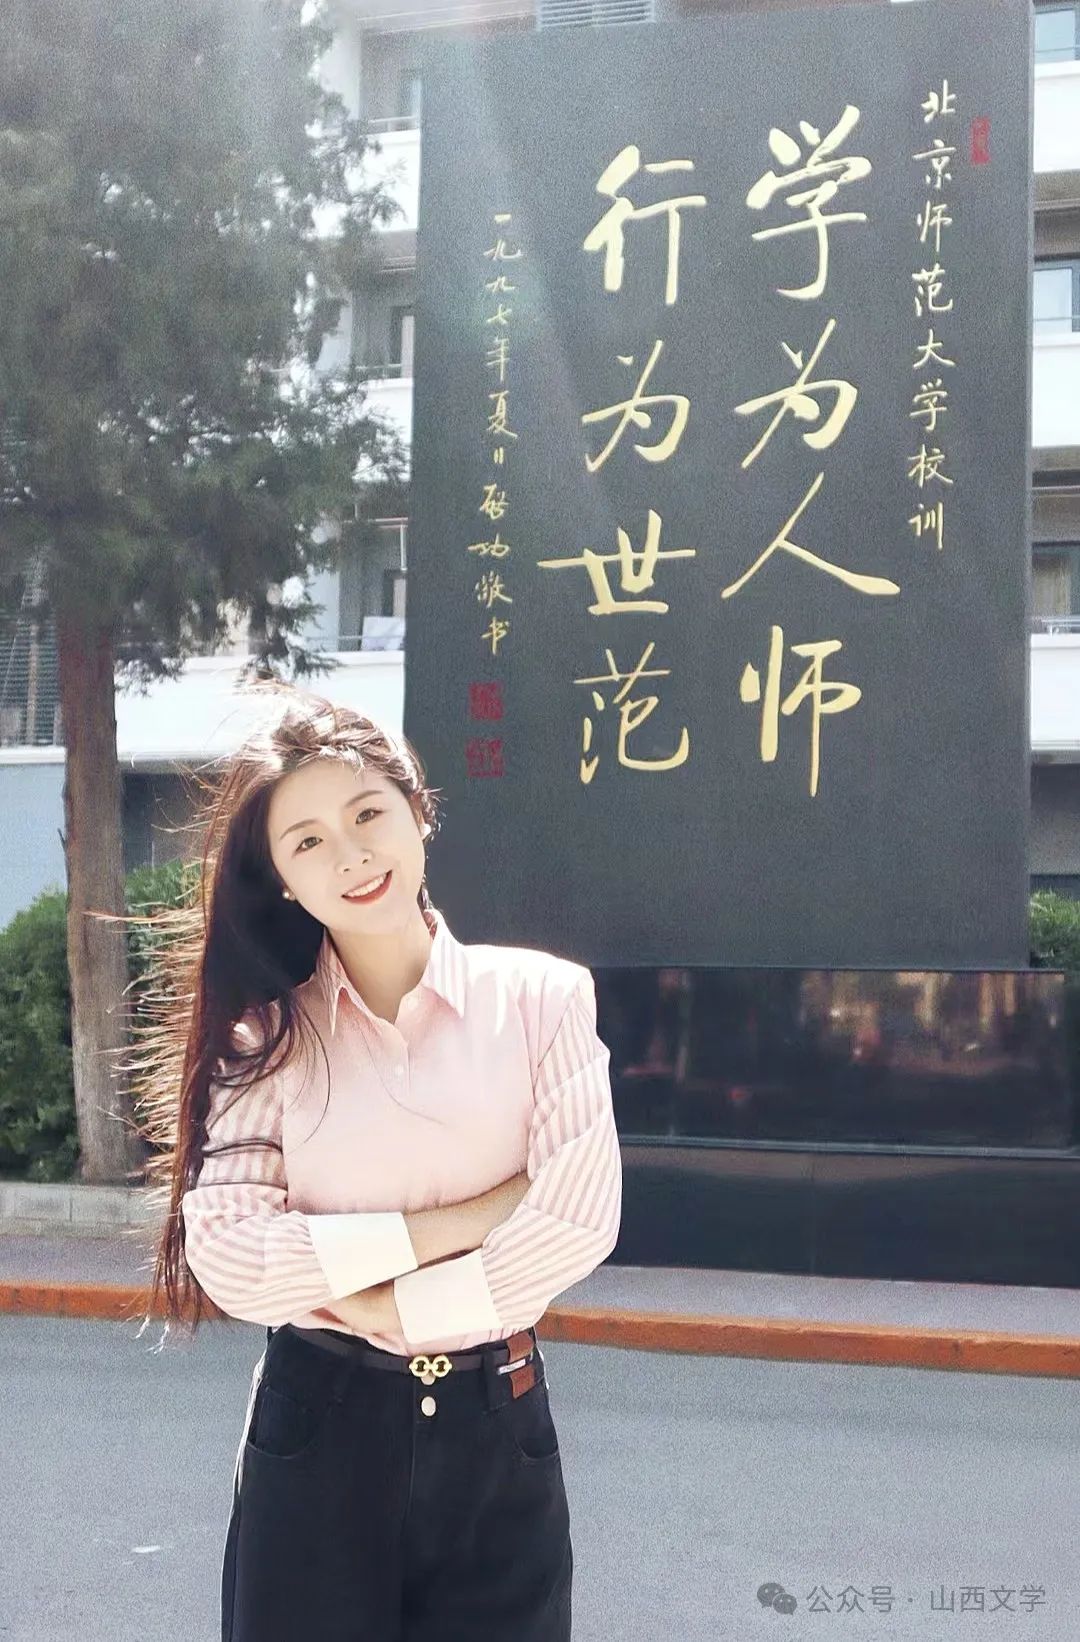 北京师范大学校训
学为人师
行为世范
一九九七年夏日启功敬书
公众号·山西文学